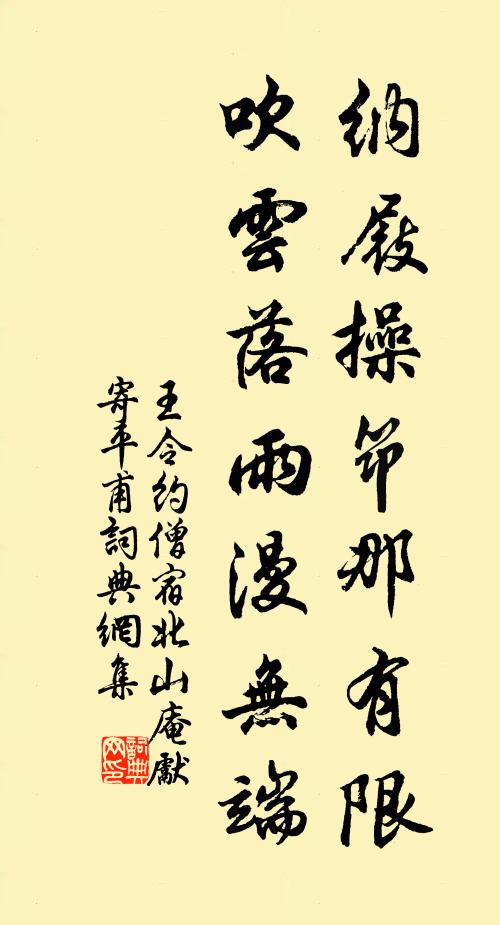 納屐操笻那有限
吹雲落雨漫無端
王令約僧宿北山庵獻
寄平甫詞典網集
詞典
网印